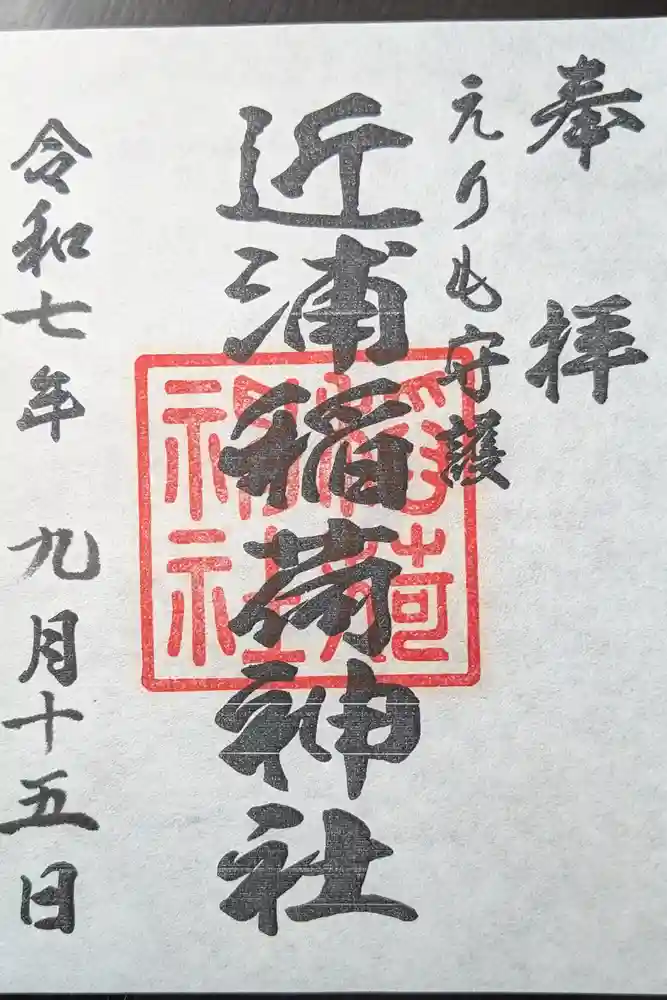 奉拝
えりも守護
近浦稲荷神社
稲荷
神社
令和七年 九月十五日